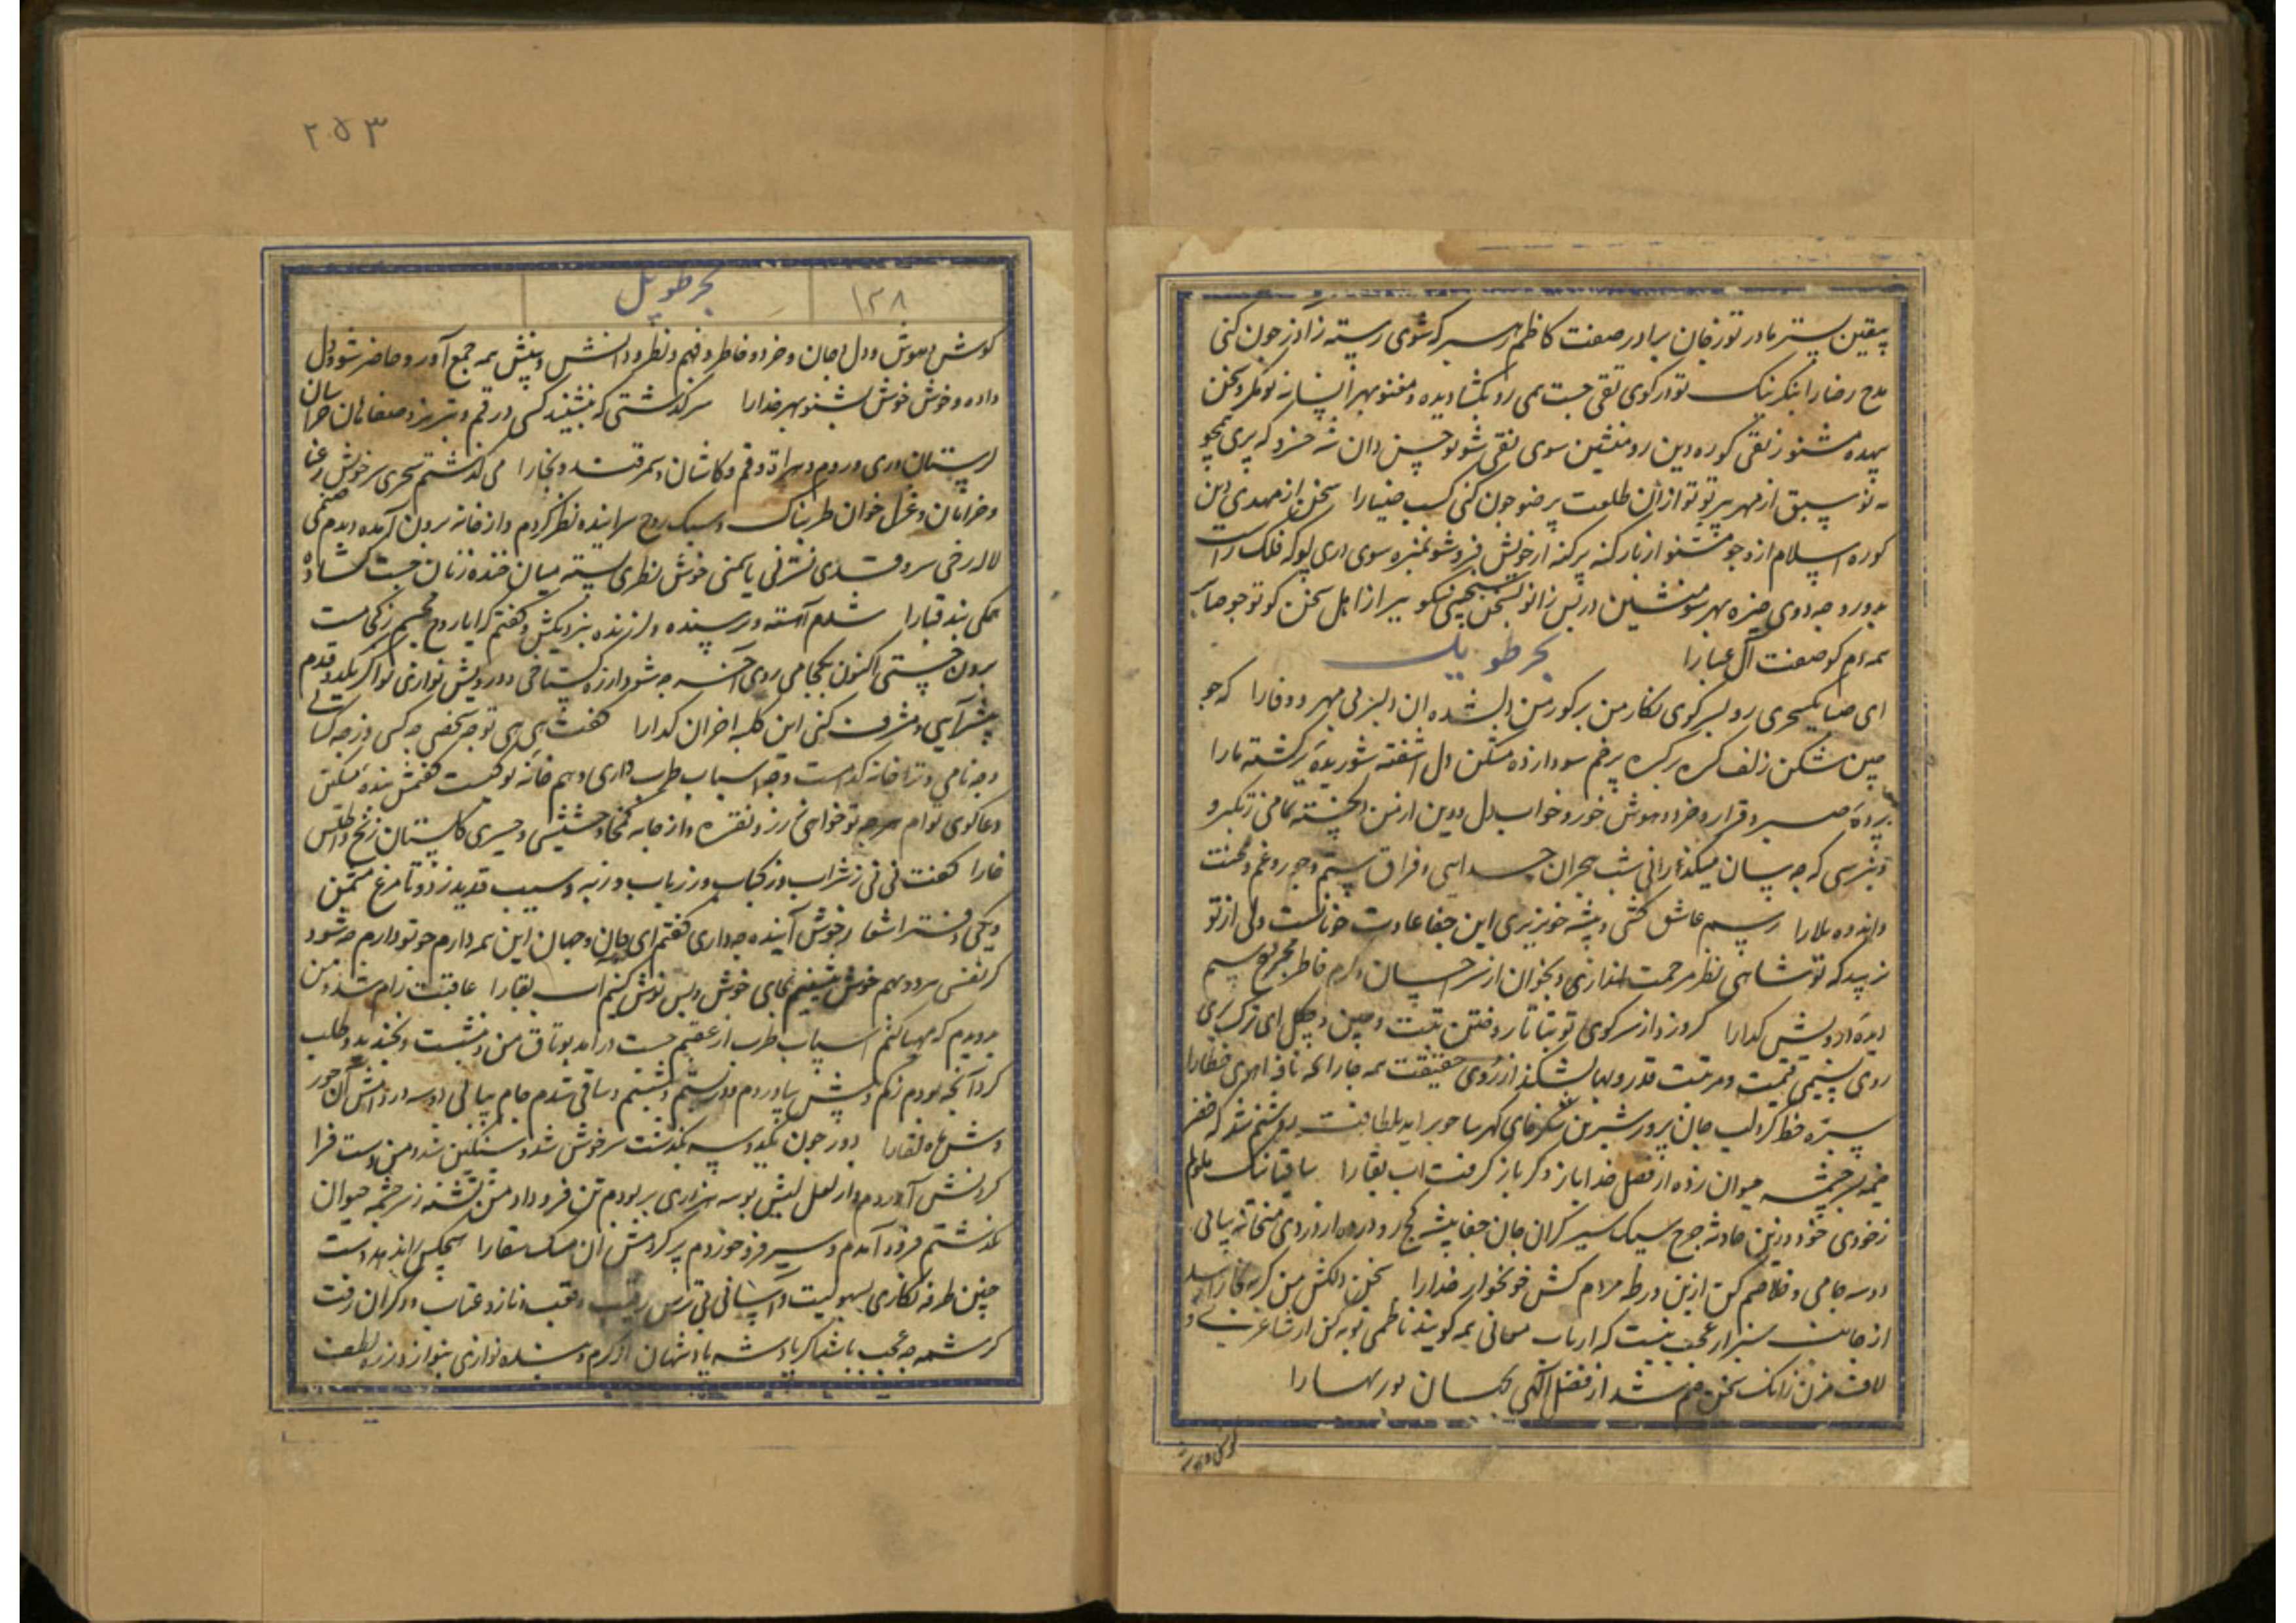 بیقین بستر مادر تو ز جان برادر صفت کاظم سرکه شوی رسته ز آذر چون کنی
مدح رضا را بنگر نیک تو در کوی تقی جست همی رو بگشا دیده و مغنو بهر افسانه تو مکر و سخن
بیهده مشنو ز نقی کوره دین رو منشین سوی نقی شو تو حسن دان شه خسرو که بری همچو
سبق از مهر تو از آن طلعت پر ضو چون کنی کسب ضیا را سخن از مهدی دین
کوره اسلام ازو جو مشنو از بار کنه پر کنه از خویش فرو شو
منشین در پس زانو از اهل سخن کو تو چو صائب
همه دم کو صفت آل عبا را
بحر طویل
ای صبا یکسحری رو بسر کوی نکار من بر کو ز من دلشده ان دلبر بی مهر و وفا را که چو
چین شکن زلف کره بر کره پر خم سودا زده مسکن دل اشفته شوریده برکشته ما را
برده صبر و قرار و خرد و هوش خور و خواب دل و دین از من دلخسته تمامی ز تکبر و
نپرسی که چه سان میکذرانی شب هجران جدایی و فراق ستم و جور و غم و محنت
و اندوه بلا را رسم عاشق کشی و پیشه خونریزی این جفا عادت خوبانست ولی از تو
نزیبد که تو شاهی نظر مرحمت اندازی و بخوان از سر احسان و کرم خاطر مجروح
دیده درویش کدا را کر وزد از سر کوی تو بتاتار و ختن تبت و چین و چکل ای ترک پری
روی نسیمی قیمت و مرتبت قدر و بها بشکند از روی حقیقت همه جا رایحه نافه اهوی خطا را
سبزه خط کرد لب جان پرور شیرین شکرخای کهرسا چو برامد بلطافت روشنم شد که خضر
خیمه بسر چشمه حیوان زده از فضل خدا باز و کر باز کرفت اب بقا را ساقیا نیک ملولم
ز خودی خود و زین حادثه چرخ سبک سیر کران جان جفا پیشه کج رو درده از دردی میخانه بیائی
دو سه جامی و خلاصم کن ازین ورطه مردم کش خونخوار خدا را سخن دلکش من کر به بخارا رسد
از جانب سبزوار عجب نیست که ارباب معانی همه کویند ناظمی توبه کن از شاعری و
لاف مزن زانک سخن ختم شد از فضل الهی بحسان پور بهسا را
کوش و هوش
۲۵۳
۱۲۸
بحر طویل
کوش و هوش و دل و جان و خرد و خاطر و فهم و نظر و دانش و بینش همه جمع آور و حاضر شو و دل
داده و خوش خوش بشنو بهر خدا را سرکذشتی که بنشنید کسی در قم و تبریز و صفاهان خراسان
لرستان و ری و روم و هراة و قم و کاشان و سمرقند و بخارا می کذشتم سحری سرخوش رعنا
و خرامان و غزل خوان طربناک و سبک روح سراینده نظر کردم و از خانه برون آمده دیدم صنمی
لاله رخی سرو قدی نسترنی یاسمنی خوش نظری بسته میان خنده زنان جست کشاده
یمکی بند قبا را شدم آهسته و ترسنده و لرزنده بنزدیکش و کفتم که ایا روح مجسم ز کجاست
برون جستی اکنون بکجا می روی آخر چه شود ار ز ره کستاخی و درویش نوازی تو اکر یکدو قدم
پیشتر آیی و مشرف کنی این کلبه احزان کدا را کفت هی هی تو چه شخصی چه کسی وز چه کسانی
و چه نامی و ترا خانه کدامست و چه اسباب طرب داری و هم خانه تو کیست کفتمش بنده مسکین
دعا کوی تو ام هر چه تو خواهی ز زر و نقره و از جامه کمخا و حشیشی و حریری کلستان زنخ و اطلس
خارا کفت نی نی ز شراب و ز کباب و ز رباب و ز به و سیب قدید ز دو تا مرغ مثمن
و یکی دفتر اشعار خوش آینده چه داری کفتم ای جان و جهان این همه دارم چو تو دارم چه شود
کر نفسی مرد و بهم خوش بنشینیم بجای خوش و بس نوش کنیم اب بقا را عاقبت رام شد و من
بدویدم که مهیا کنم اسباب طرب از عقبم جست درامد بوثاق من و بنشست و بخندید و طلب
کرد آنچه بودم ز کم و بیش بیاوردم و بنشستم و ساقی شدم جام پیاپی دو سه در دادمش آن حور
وش ماه لقا را دور چون یکدو سه بکذشت سرخوش شد و سنکین شد و من دست فرا
کردنش آوردم و از لعل لبش بوسه هزاری بربودم تن فرو داد من تشنه ز سر چشمه حیوان
بکذشتم فرود آمدم و سیر فرو خوردم پر کردمش آن مشک سقا را هیچکس را ندهد دست
چنین طرفه نکاری بسهولیت و آسانی بی ترس رقیب و تعب و ناز و عتاب و دکران رفت
کرشمه چه عجب باشد اکر پادشه پادشهان از کرم و بنده نوازی بنوازد ز ره لطف